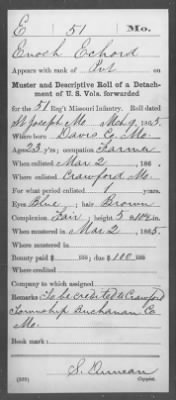 E 51 Mo.
Enoch Echord
Appears with rank of Pvt on
Muster and Descriptive Roll of a Detach-
ment of U. S. Vols. forwarded
for the 51 Reg't Missouri Infantry. Roll dated
St Joseph Mo Mch 9, 1865.
Where born Davis Co, Mo.
Age 23 y'rs; occupation Farmer
When enlisted Mar 2, 186 .
Where enlisted Crawford Mo.
For what period enlisted 1 years.
Eyes Blue; hair Brown
Complexion Fair; height 5 ft. in.
When mustered in Mar 2, 1865.
Where mustered in
Bounty paid $ 100; due $ 100 100
Where credited
Company to which assigned
Remarks To be credited to Crawford
Township Buchanan Co
Mo.
Book mark:
S. Duncan
Copyist.